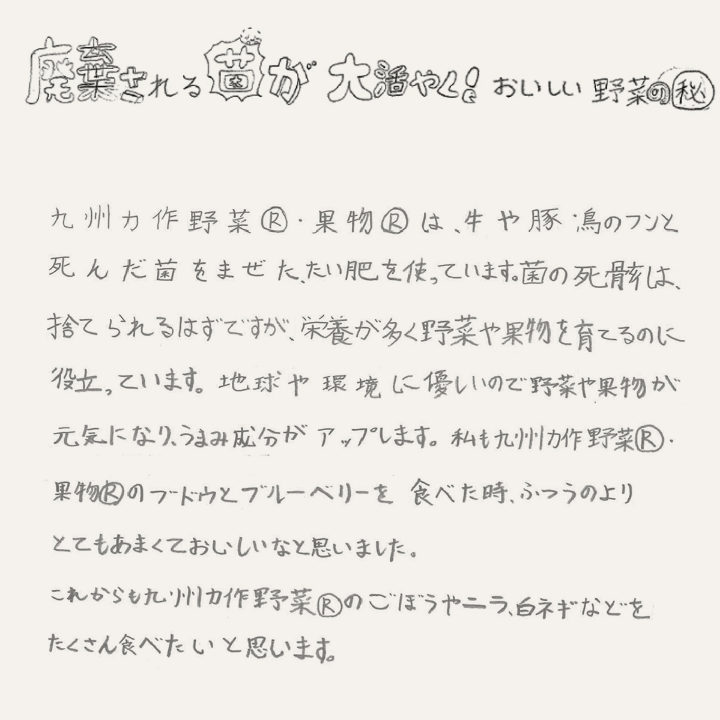 廃棄される菌が大活やく！おいしい野菜の㊙
九州力作野菜Ⓡ・果物Ⓡは、牛や豚、鳥のフンと
死んだ菌をまぜた、たい肥を使っています。菌の死骸は、
捨てられるはずですが、栄養が多く野菜や果物を育てるのに
役立っています。地球や環境に優しいので野菜や果物が
元気になり、うまみ成分がアップします。私も九州力作野菜Ⓡ・
果物Ⓡのブドウとブルーベリーを食べた時、ふつうのより
とてもあまくておいしいなと思いました。
これからも九州力作野菜Ⓡのごぼうやニラ、白ネギなどを
たくさん食べたいと思います。